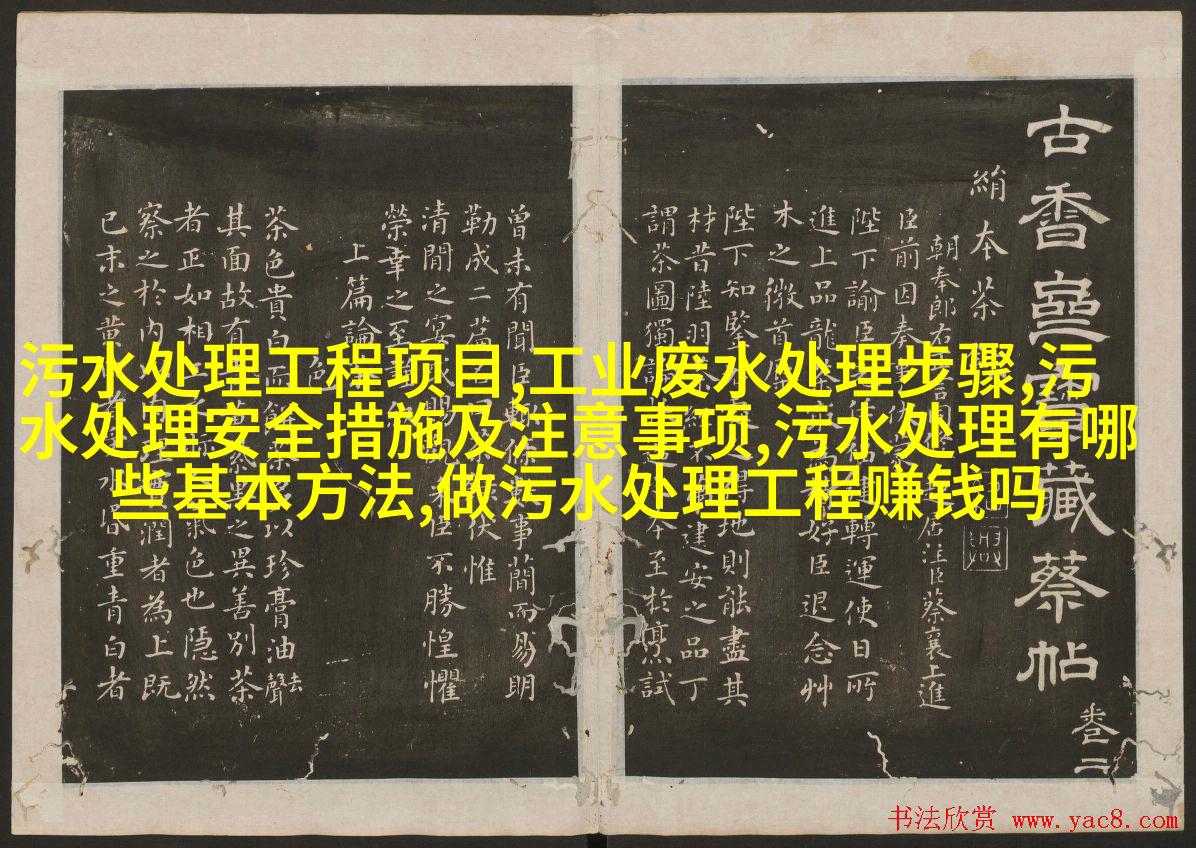 古香齋寶藏蔡帖
卷二
絹本茶
朝奉郎右正言同居注臣蔡襄上進
臣前因奏事伏
陛下諭臣建轉運使日所
進上品龍茶好臣退念艸
木之微首辱
陛下知鑒得地則能盡其
材昔陸羽茶建安之品丁
謂茶圖獨論本至於烹試
曾未有聞臣輒條數事簡而易明
勒成二篇伏惟
清閒之宴或賜觀臣不勝惶懼
榮幸之至
上篇論茶
色
茶色貴白而餅茶以珍膏油去聲
其面故有黑之異善別茶
者正如相氣色也隱然
察之於內潤者為上既
已末之黃水昏重青白者
污水处理工程项目,工业废水处理步骤,污
水处理安全措施及注意事项,污水处理有哪
些基本方法,做污水处理工程赚钱吗
书法欣赏 www.yac8.com